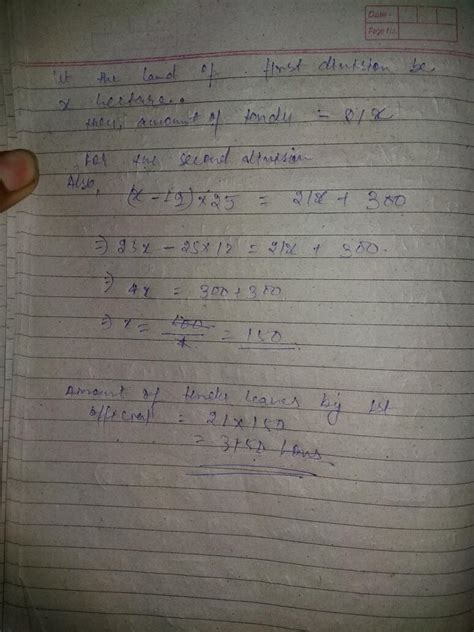 Date :
Page No.
let the land of first division be
x hectare.
then, amount of tendu = 21x
for the second division
Also,
(x - 12) × 25 = 21x + 300
=) 25x - 25×12 = 21x + 300.
=) 4x = 300 + 300
=) x = 600/4 = 150
Amount of tendu leaves by 1st
official = 21 × 150
= 3150 tons